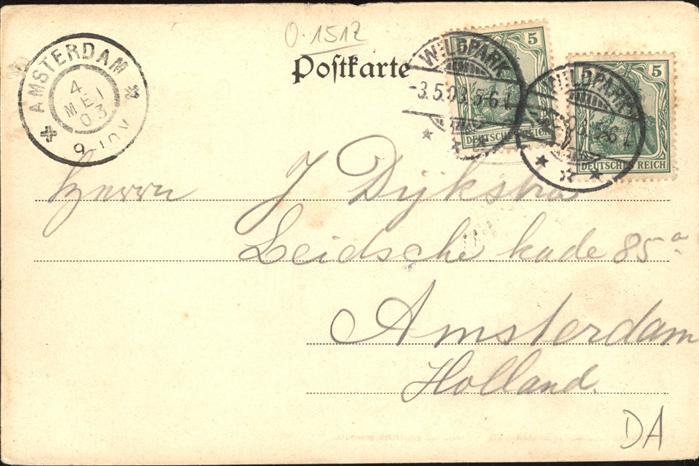 0.1512
Postkarte
AMSTERDAM
4
MEI
03
9-10V
WILDPARK
-3.5.03.5-6
5
DEUTSCHES REICH
WILDPARK
5-6
5
DEUTSCHES REICH
Herrn J Dijkstra
Leidsche kade 85a
Amsterdam
Holland
DA